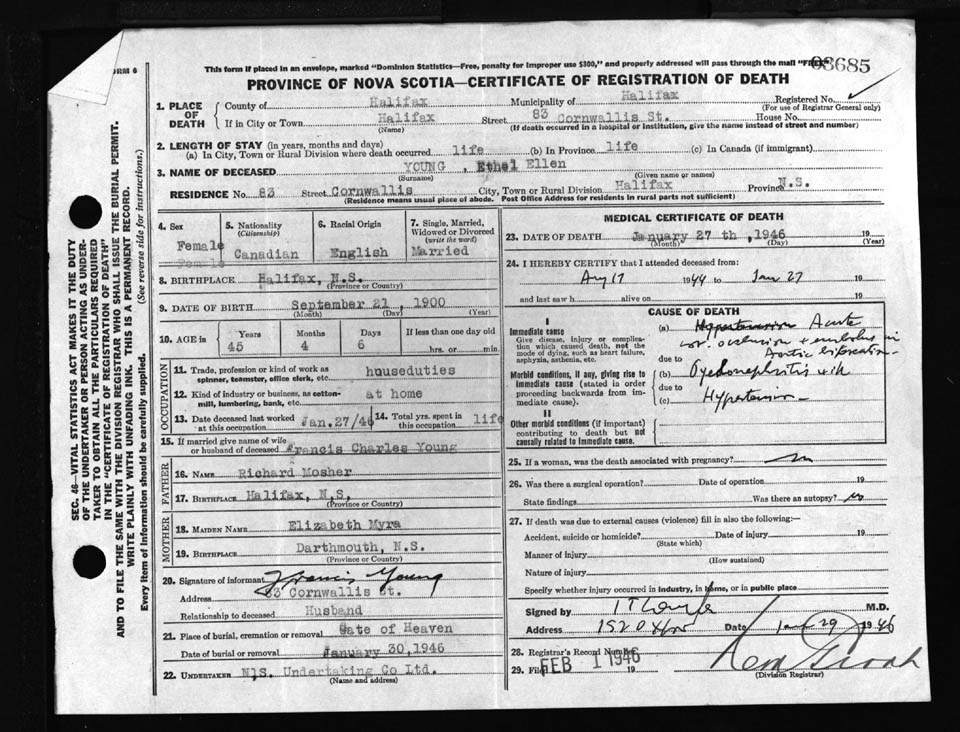 FORM 6
This form if placed in an envelope, marked "Dominion Statistics—Free, penalty for improper use $300," and properly addressed will pass through the mail "FREE"
03685
PROVINCE OF NOVA SCOTIA—CERTIFICATE OF REGISTRATION OF DEATH
1. PLACE OF DEATH
County of Halifax Municipality of Halifax Registered No.
(For use of Registrar General only)
If in City or Town Halifax Street 83 Cornwallis St. House No.
(Name) (If death occurred in a hospital or institution, give the name instead of street and number)
2. LENGTH OF STAY (in years, months and days)
(a) In City, Town or Rural Division where death occurred life (b) In Province life (c) In Canada (if immigrant)
3. NAME OF DECEASED YOUNG, Ethel Ellen
(Surname) (Given name or names)
RESIDENCE No. 83 Street Cornwallis City, Town or Rural Division Halifax Province N.S.
(Residence means usual place of abode. Post Office Address for residents in rural parts not sufficient)
4. Sex
Female
Female
5. Nationality
(Citizenship)
Canadian
6. Racial Origin
English
7. Single, Married, Widowed or Divorced
(write the word)
Married
8. BIRTHPLACE Halifax, N.S.
(Province or Country)
9. DATE OF BIRTH September 21, 1900
(Month) (Day) (Year)
10. AGE in
Years Months Days If less than one day old
45 4 6 hrs. or min.
OCCUPATION
11. Trade, profession or kind of work as spinner, teamster, office clerk, etc. houseduties
12. Kind of industry or business, as cotton-mill, lumbering, bank, etc. at home
13. Date deceased last worked at this occupation Jan.27/46
14. Total yrs. spent in this occupation life
15. If married give name of wife or husband of deceased Francis Charles Young
FATHER
16. Name Richard Mosher
17. Birthplace Halifax, N.S,
(Province or Country)
MOTHER
18. Maiden Name Elizabeth Myra
19. Birthplace Darthmouth, N.S.
(Province or Country)
20. Signature of informant Francis Young
Address 83 Cornwallis St.
Relationship to deceased Husband
21. Place of burial, cremation or removal Gate of Heaven
Date of burial or removal January 30,1946
22. Undertaker N.S. Undertaking Co Ltd.
(Name and address)
MEDICAL CERTIFICATE OF DEATH
23. DATE OF DEATH January 27 th, 1946 19
(Month) (Day) (Year)
24. I HEREBY CERTIFY that I attended deceased from:
Aug 17 1944 to Jan 27 19
and last saw h alive on 19
CAUSE OF DEATH
I
Immediate cause
Give disease, injury or complication which caused death, not the mode of dying, such as heart failure, asphyxia, asthenia, etc.
Morbid conditions, if any, giving rise to immediate cause (stated in order proceeding backwards from immediate cause).
II
Other morbid conditions (if important) contributing to death but not causally related to immediate cause.
(a) Hypertension Acute
cor. occlusion + embolus in
Aortic bifurcation
due to
(b) Pyelonephritis with
due to
(c) Hypertension
25. If a woman, was the death associated with pregnancy? no
26. Was there a surgical operation? Date of operation 19
State findings Was there an autopsy? No
27. If death was due to external causes (violence) fill in also the following:—
Accident, suicide or homicide? Date of injury 19
(State which)
Manner of injury
(How sustained)
Nature of injury
Specify whether injury occurred in industry, in home, or in public place
Signed by M.D.
Address Date Jan 29 1946
28. Registrar's Record Number
29. Filed FEB 1 1946 19
(Division Registrar)
SEC. 46—VITAL STATISTICS ACT MAKES IT THE DUTY
OF THE UNDERTAKER OR PERSON ACTING AS UNDER-
TAKER TO OBTAIN ALL THE PARTICULARS REQUIRED
IN THE "CERTIFICATE OF REGISTRATION OF DEATH"
AND TO FILE THE SAME WITH THE DIVISION REGISTRAR WHO SHALL ISSUE THE BURIAL PERMIT.
WRITE PLAINLY WITH UNFADING INK. THIS IS A PERMANENT RECORD.
Every item of information should be carefully supplied. (See reverse side for instructions.)